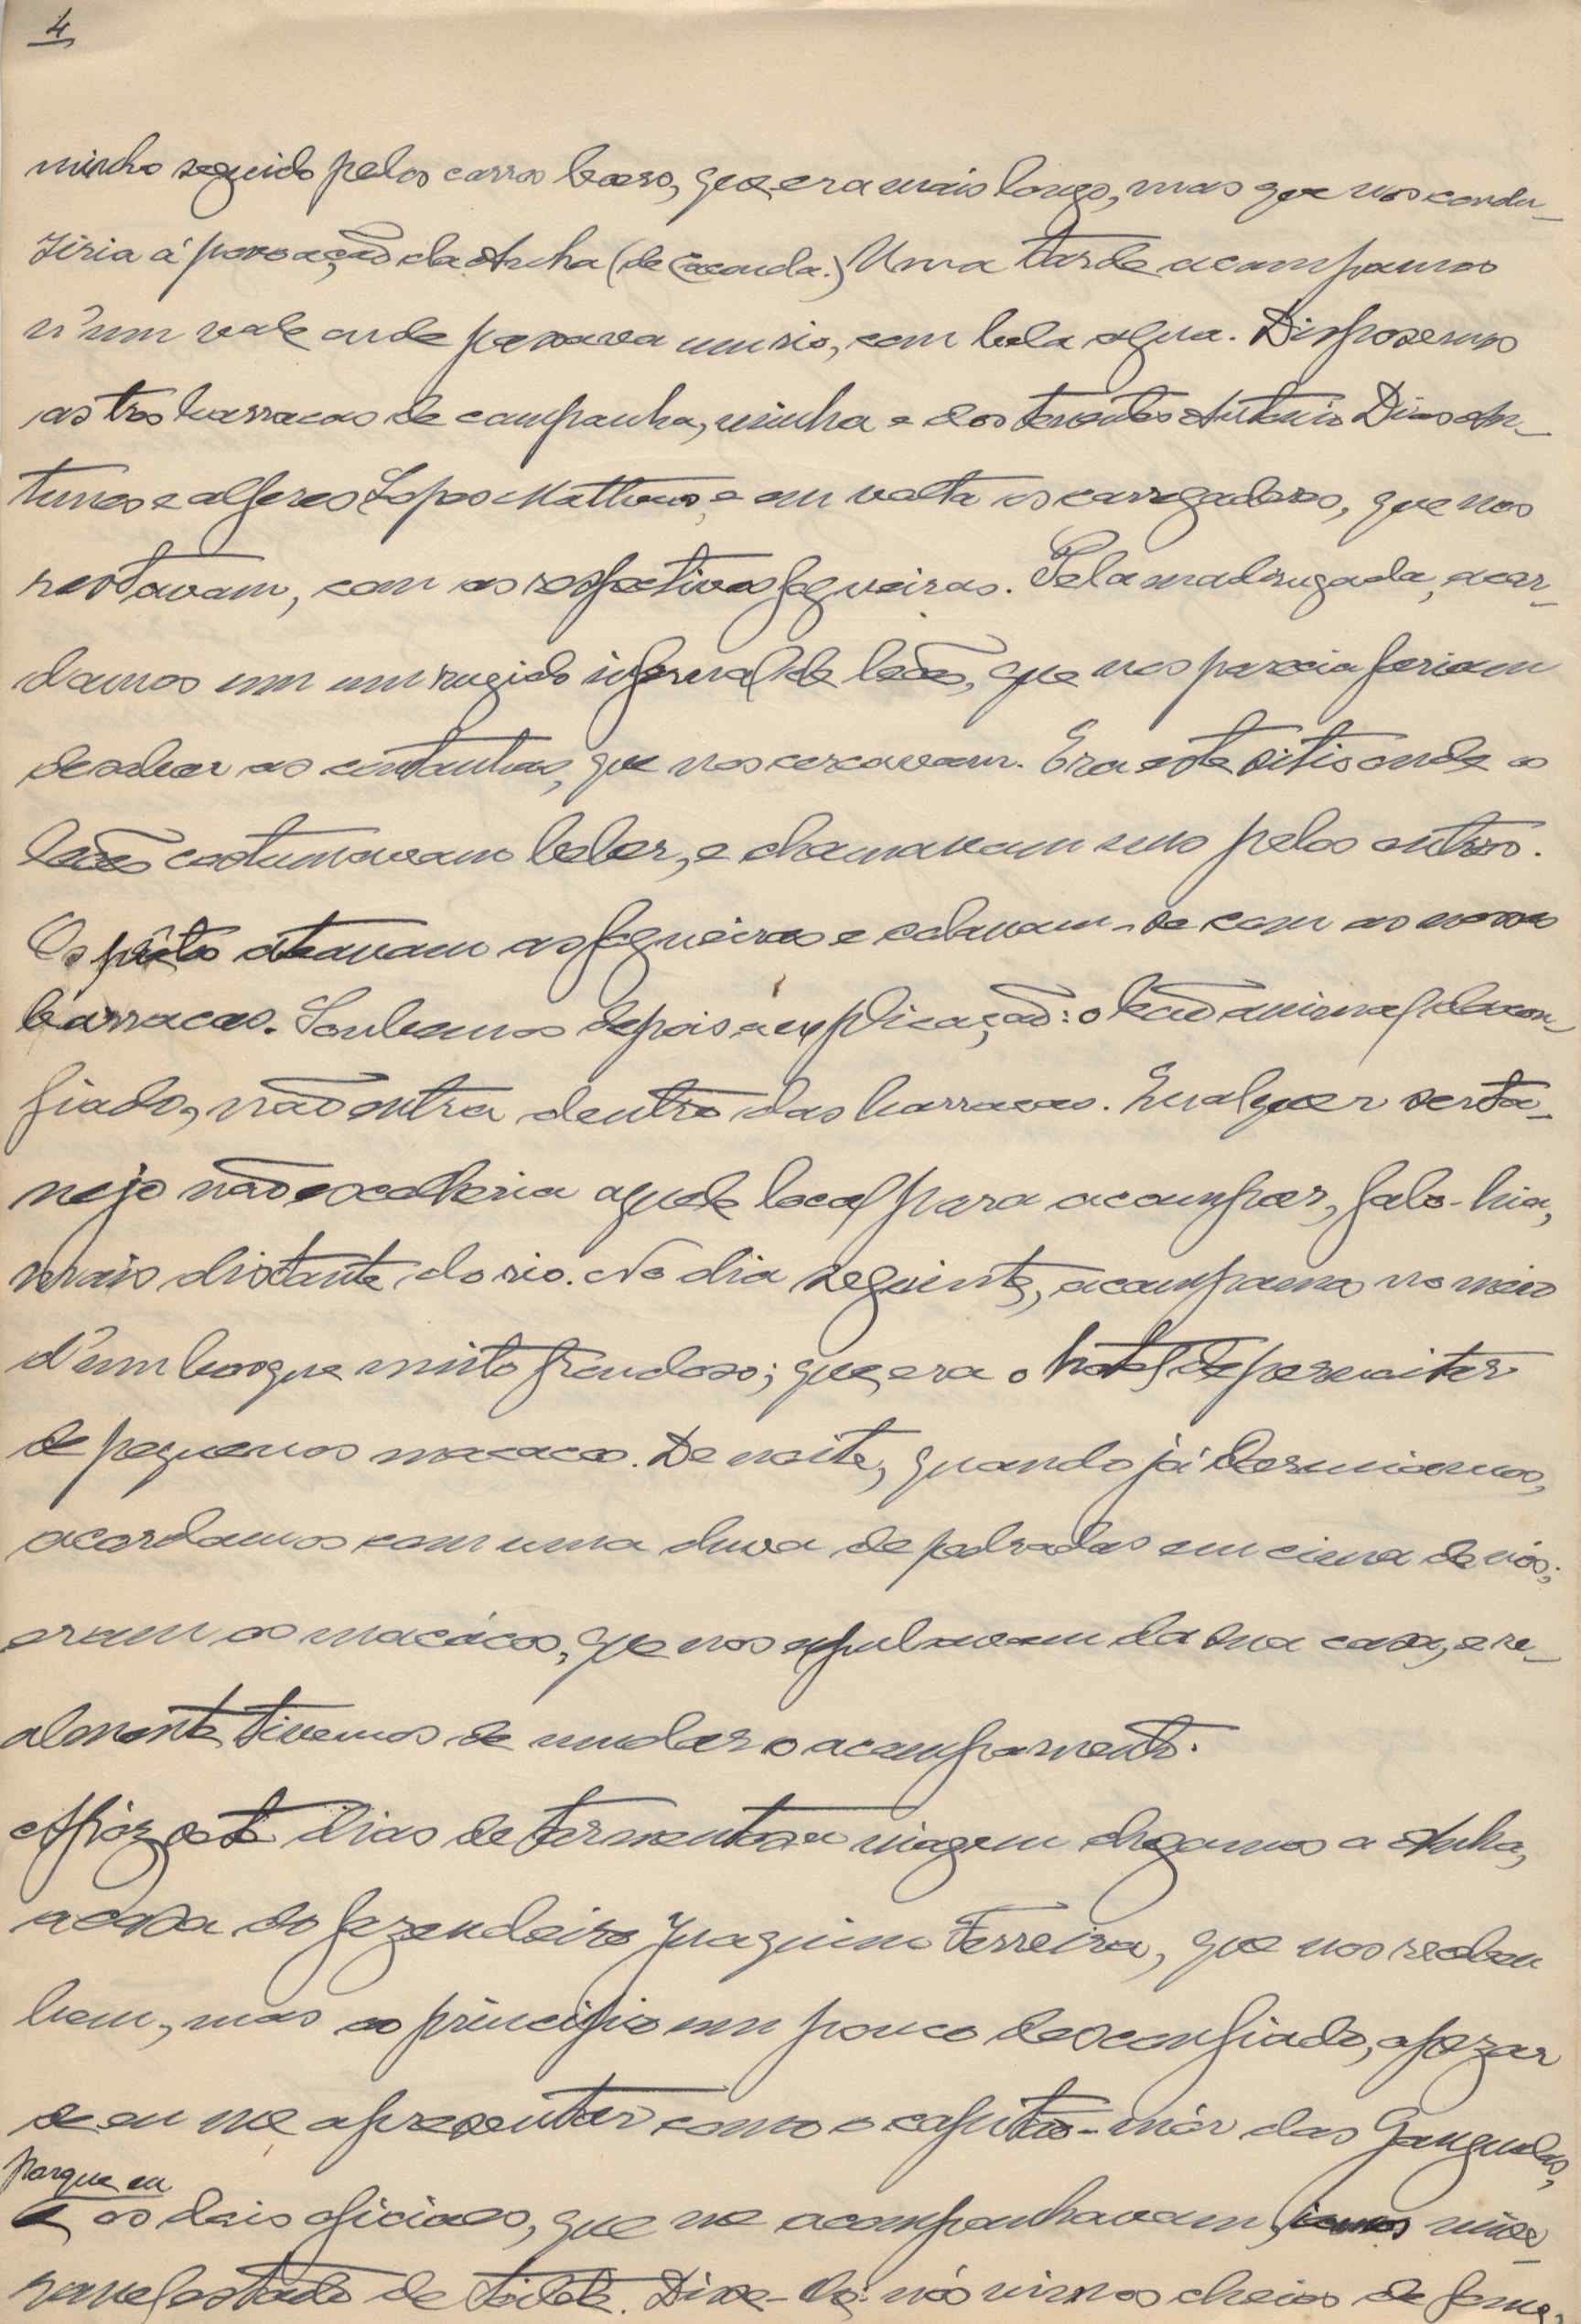 4
minho seguido pelos carros boers, que era mais longo, mas que nos condu-
ziria á povoação da Anha (de Caconda.) Uma tarde acampamos
n'um vale onde passava um rio, com bela agua. Dispozemos
as tres barracas de campanha, minha e dos tenentes Antonio Dias An-
tunes e alferes Lopes Matheus, e em volta os carregadores, que nos
restavam, com as respectivas fogueiras. Pela madrugada, acor-
damos em um rugido infernal de leões, que nos parecia feriam
desabar as montanhas, que nos cercavam. Era este sitio onde os
leões costumavam beber, e chamavam uns pelos outros.
Os prêtos ateavam as fogueiras e colavam-se com as nossas
barracas. Soubemos depois a explicação: o leão animal descon-
fiado, não entra dentro das barracas. Qualquer serta-
nejo não escolheria aquele local para acampar, falo-hia,
mais distante do rio. No dia seguinte, acampamos no meio
d'um bosque muito frondoso; que era o hotel de pernoitar
de pequenos macacos. De noite, quando já dormiamos,
acordamos com uma chuva de pedradas em cima de nós;
eram os macácos, que nos expulsavam da sua casa, e re-
almente tivemos de mudar o acampamento.
Apóz sete dias de tormentosa viagem chegamos a Anha,
a casa do fazendeiro Juaquim Ferreira, que nos recebeu
bem, mas ao principio um pouco desconfiado, apezar
de eu me apresentar como o capitão-mór das Ganguelas,
porque eu
e os dois oficiaes, que me acompanhavam, iamos mise-
ravel estado de toilete. Disse-lhe: nós vimos cheios de fome,